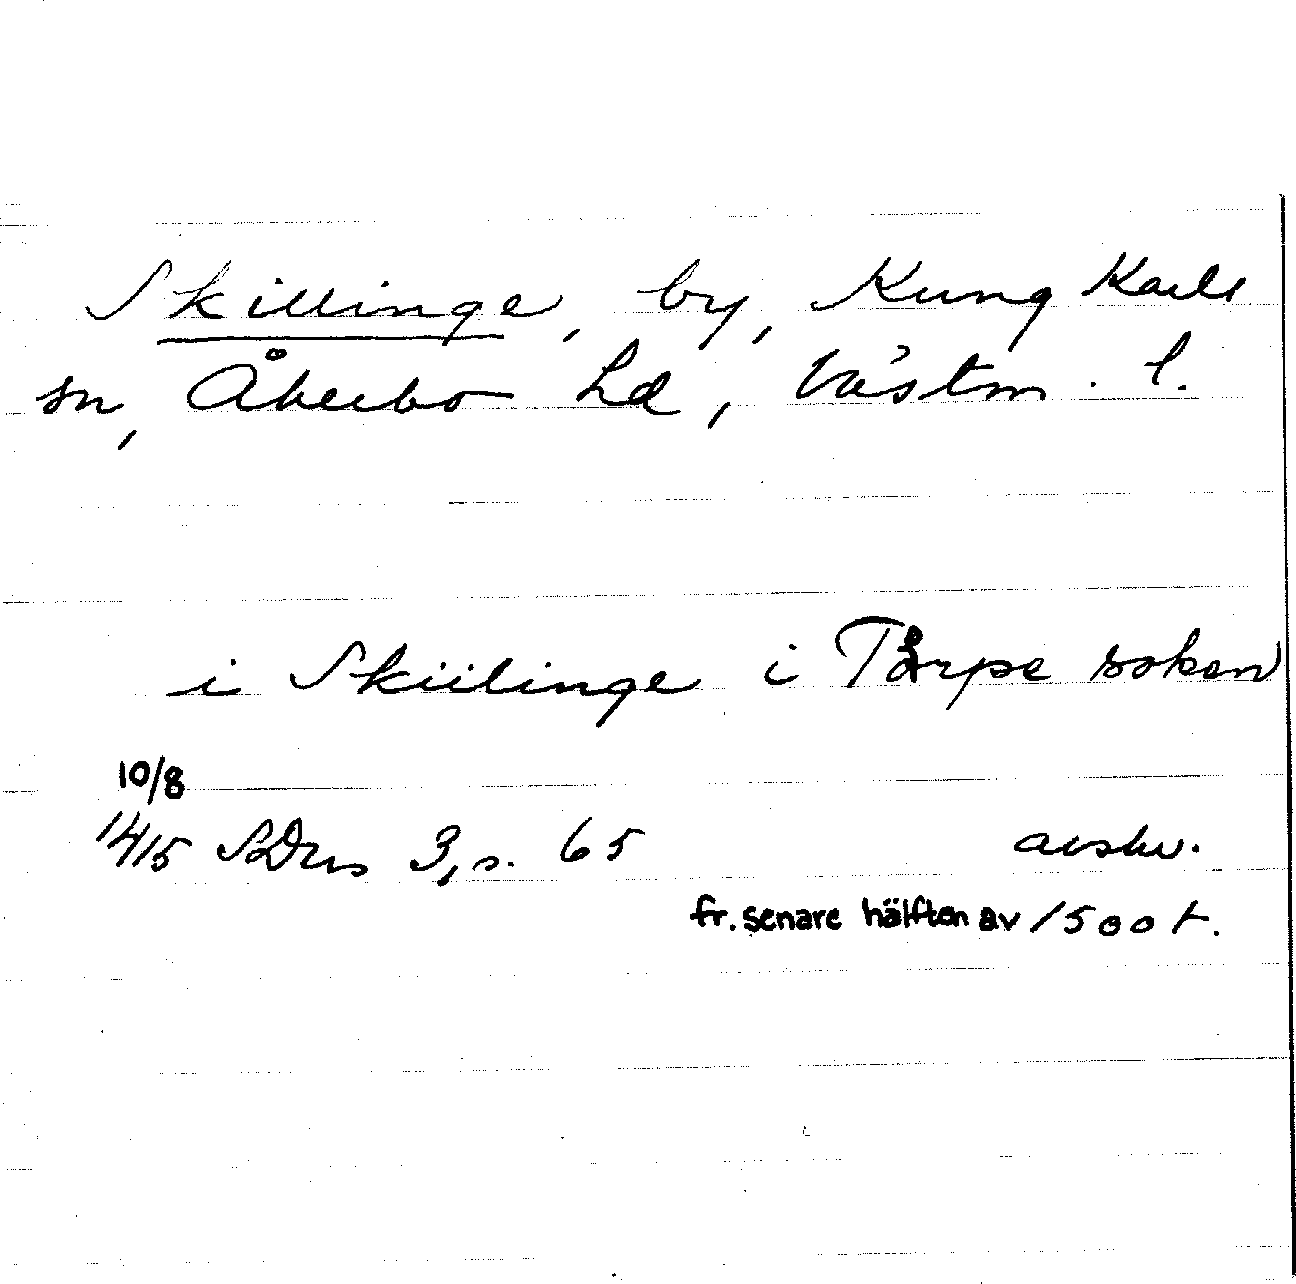 Skillinge, by, Kung Karls
sn, Åkerbo hd, Västm. l.
i Skiilinge i Tårpe soken
10/8
1415 SDns 3, s. 65 avskr.
fr. senare hälften av 1500 t.